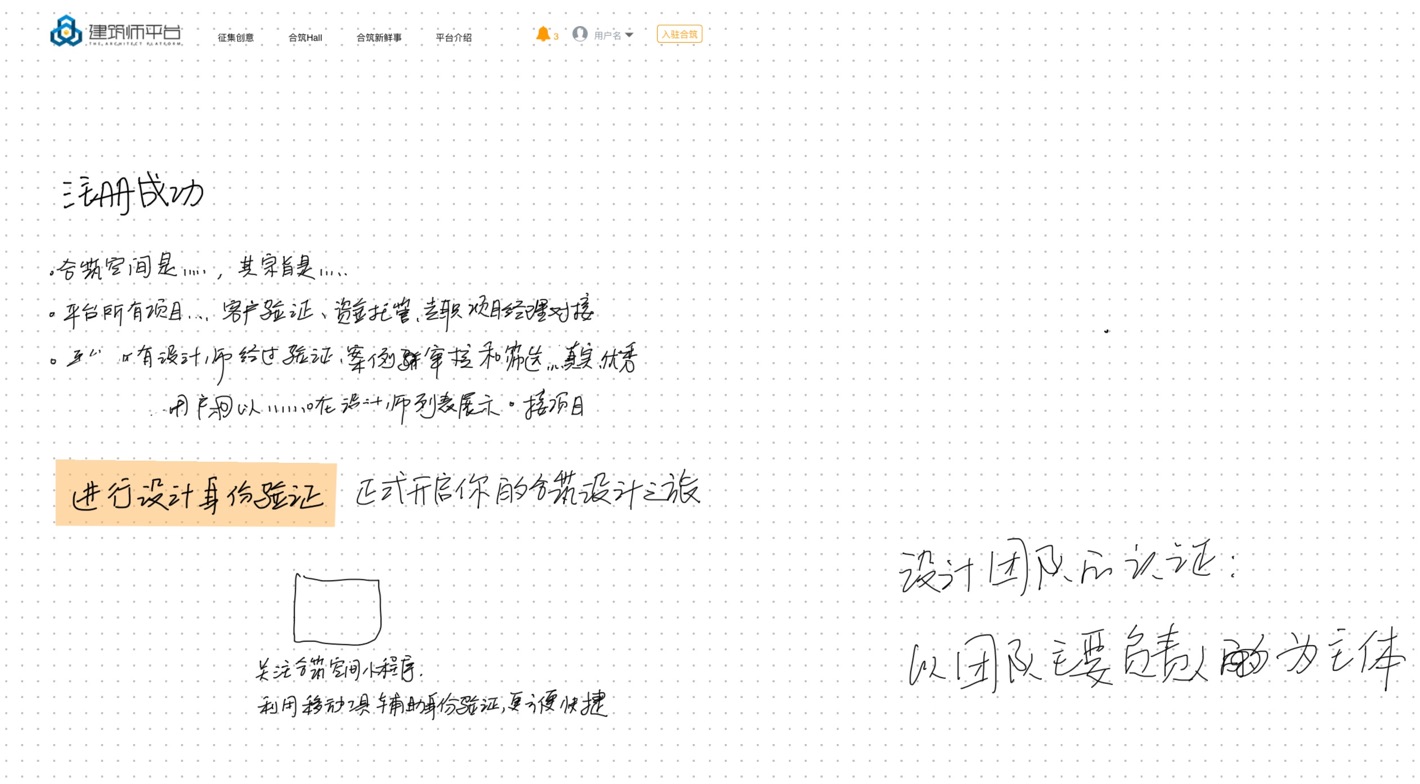 建筑师平台
THE ARCHITECT PLATFORM
征集创意 合筑Hall 合筑新鲜事 平台介绍 3 用户名 入驻合筑
注册成功
·合筑空间是……,其宗旨是……
·平台所有项目…客户验证、资金托管、专职项目经理对接
·有设计师经过验证、案例审核和筛选…真实、优秀
…用户可以……在设计师列表展示·接项目
进行设计身份验证 正式开启你的合筑设计之旅
关注合筑空间小程序.
利用移动工具辅助身份验证,更方便快捷
设计团队的认证:
以团队主要负责人为主体